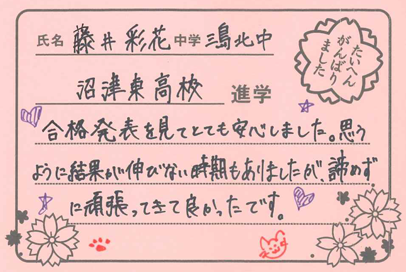 氏名 藤井 彩花 中学 三島北中
たいへん
がんばり
ました
沼津東高校 進学
合格発表を見てとても安心しました。思う
ように結果が伸びない時期もありましたが、諦めず
に頑張ってきて良かったです。